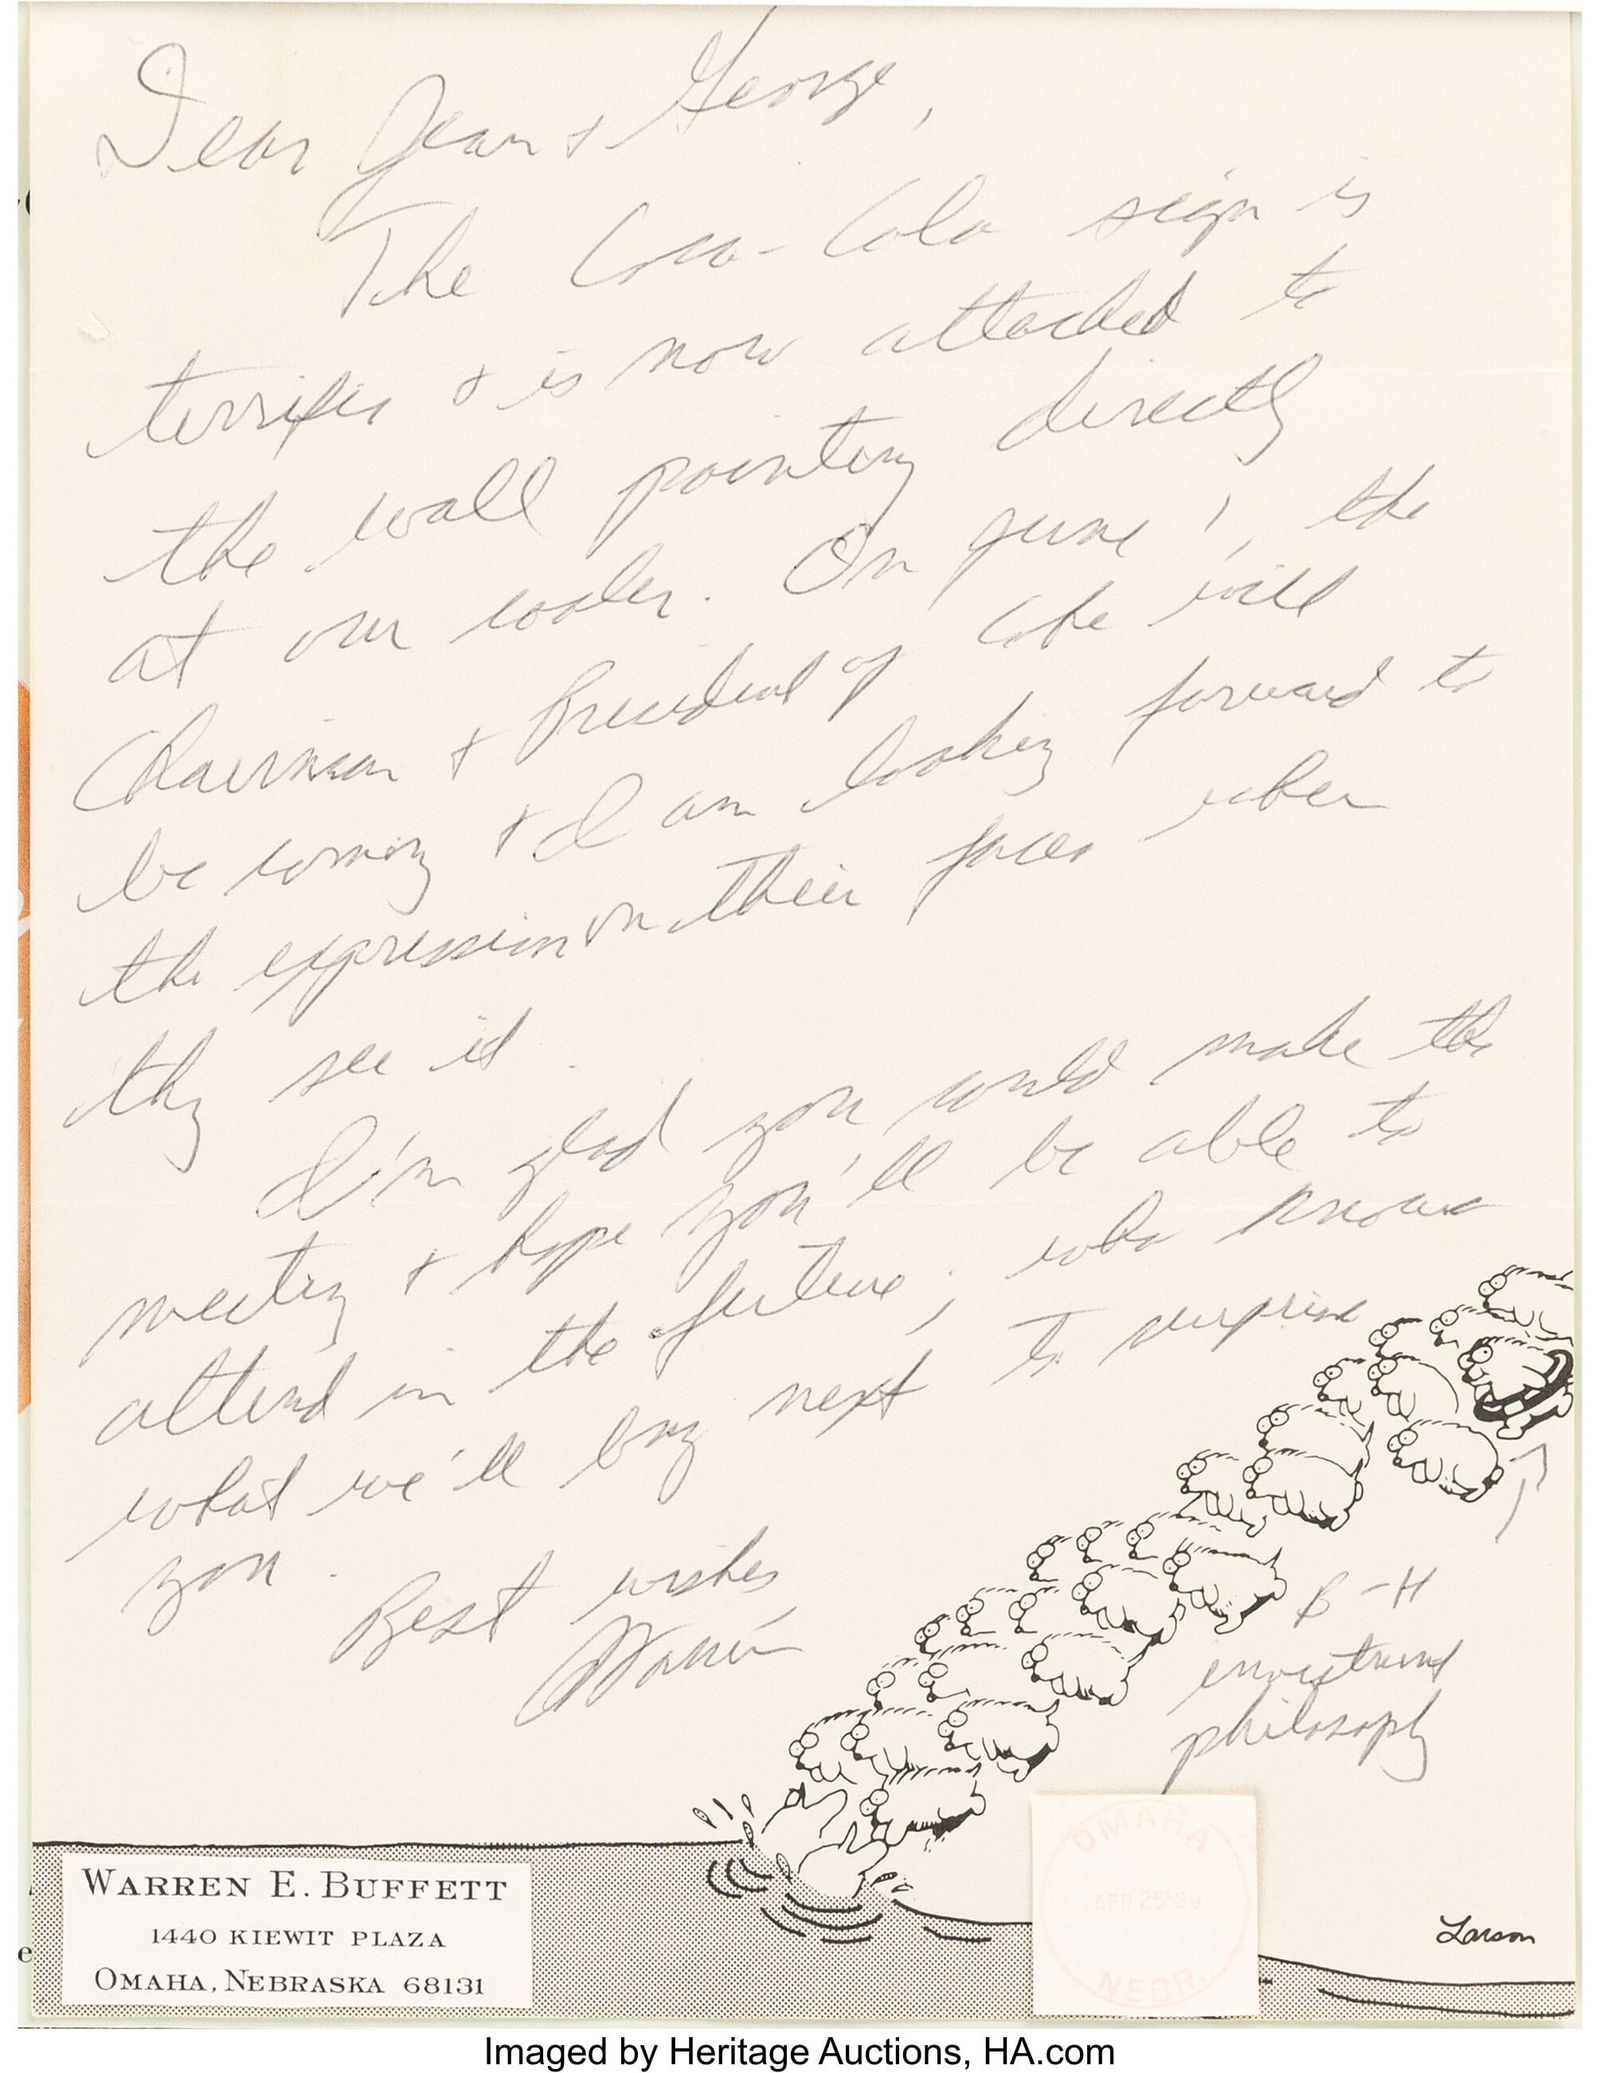 Dear Jean + George,
The Coca-Cola sign is
terrific + is now attached to
the wall pointing directly
at our cooler. On June 1, the
Chairman + President of Coke will
be coming + I am looking forward to
the expression on their faces when
they see it.
I'm glad you could make the
meeting + hope you'll be able to
attend in the future; who knows
what we'll buy next to surprise
you.
Best wishes
Warren
B-H
investment
philosophy
WARREN E. BUFFETT
1440 KIEWIT PLAZA
OMAHA, NEBRASKA 68131
OMAHA
APR 25'89
NEBR.
Larson
Imaged by Heritage Auctions, HA.com